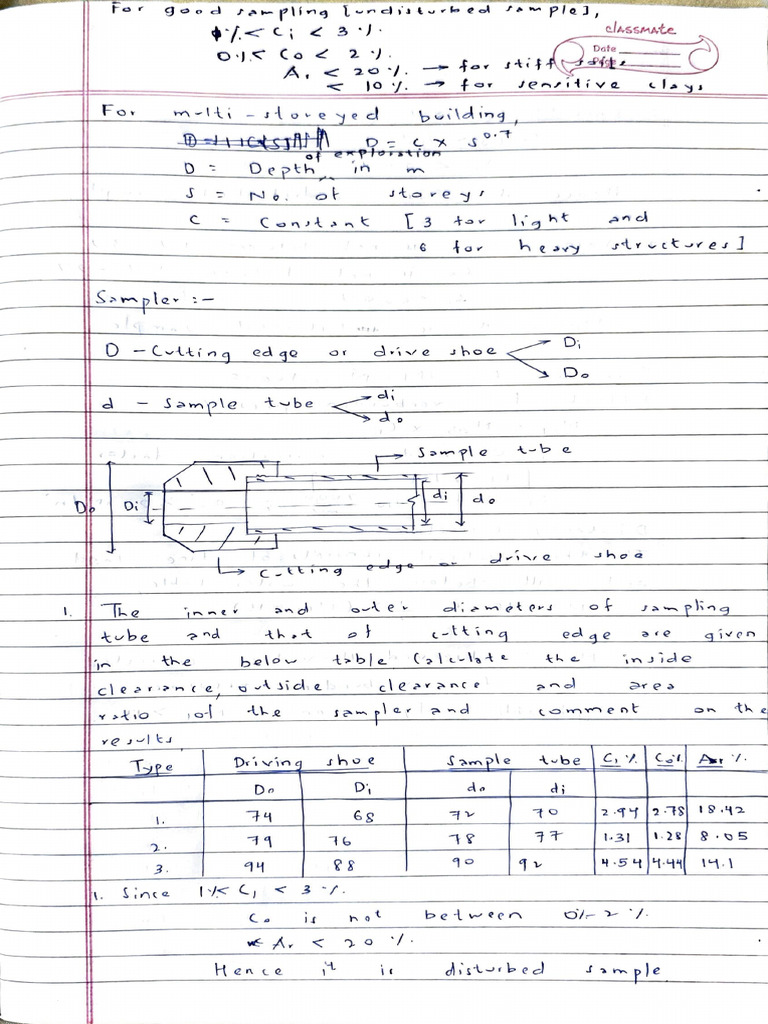 For good sampling [undisturbed sample],
classmate
1% < Ci < 3 %.
Date
0% < Co < 2 %.
Page
Ar < 20 %. → for stiff
< 10 %. → for sensitive clays
For multi-storeyed building,
D = C x S^0.7
of exploration
D = Depth in m
S = No. of storeys
C = Constant [3 for light and
6 for heavy structures]
Sampler :-
D - Cutting edge or drive shoe
Di
Do
d - Sample tube
di
do
Sample tube
Do Di di do
Cutting edge or drive shoe
1. The inner and outer diameters of sampling
tube and that of cutting edge are given
in the below table. Calculate the inside
clearance, outside clearance and area
ratio of the sampler and comment on the
results.
Type Driving shoe Sample tube Ci % Co% Ar %.
Do Di do di
1. 74 68 72 70 2.94 2.78 18.42
2. 79 76 78 77 1.31 1.28 8.05
3. 94 88 90 92 4.54 4.44 14.1
1. Since 1% < Ci < 3 %.
Co is not between 0%-2 %.
Ar < 20 %.
Hence it is disturbed sample